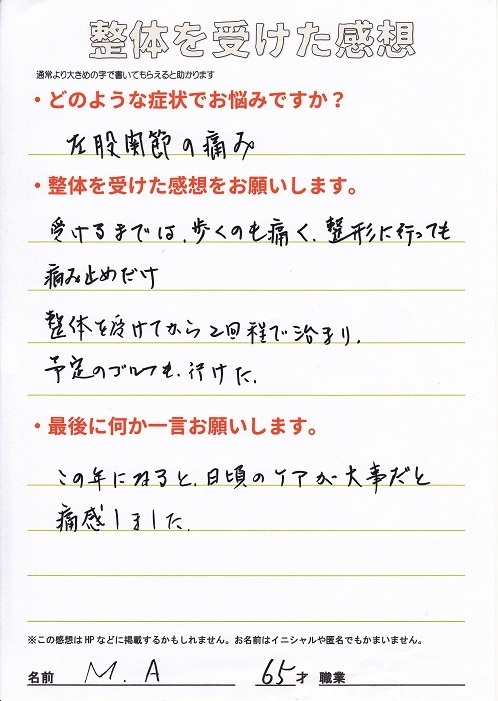 整体を受けた感想
通常より大きめの字で書いてもらえると助かります
・どのような症状でお悩みですか？
左股関節の痛み
・整体を受けた感想をお願いします。
受けるまでは、歩くのも痛く、整形に行っても
痛み止めだけ
整体を受けてから2回程で治まり、
予定のゴルフも、行けた。
・最後に何か一言お願いします。
この年になると、日頃のケアが大事だと
痛感しました。
※この感想はHPなどに掲載するかもしれません。お名前はイニシャルや匿名でもかまいません。
名前 M. A 65才 職業